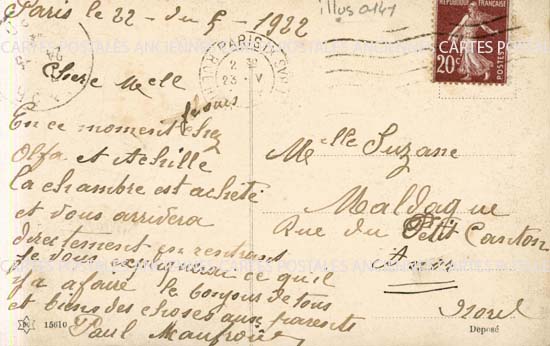 Paris le 22 - du 5 - 1922
illus 0147
REPUBLIQUE FRANÇAISE
20c
POSTES
PARIS
CARTES POSTALES ANCIENNES
Chere Melle
En ce moment chez
Olga et Achille
la chambre est acheté
et vous arrivera
directement en rentrant
Je vous expliquerai ce qu'il
y a
le bonjour de tous
et biens des choses aux parents
Paul
Melle Suzane
Maldague
Rue du Petit Canton
Nord
15610
Déposé